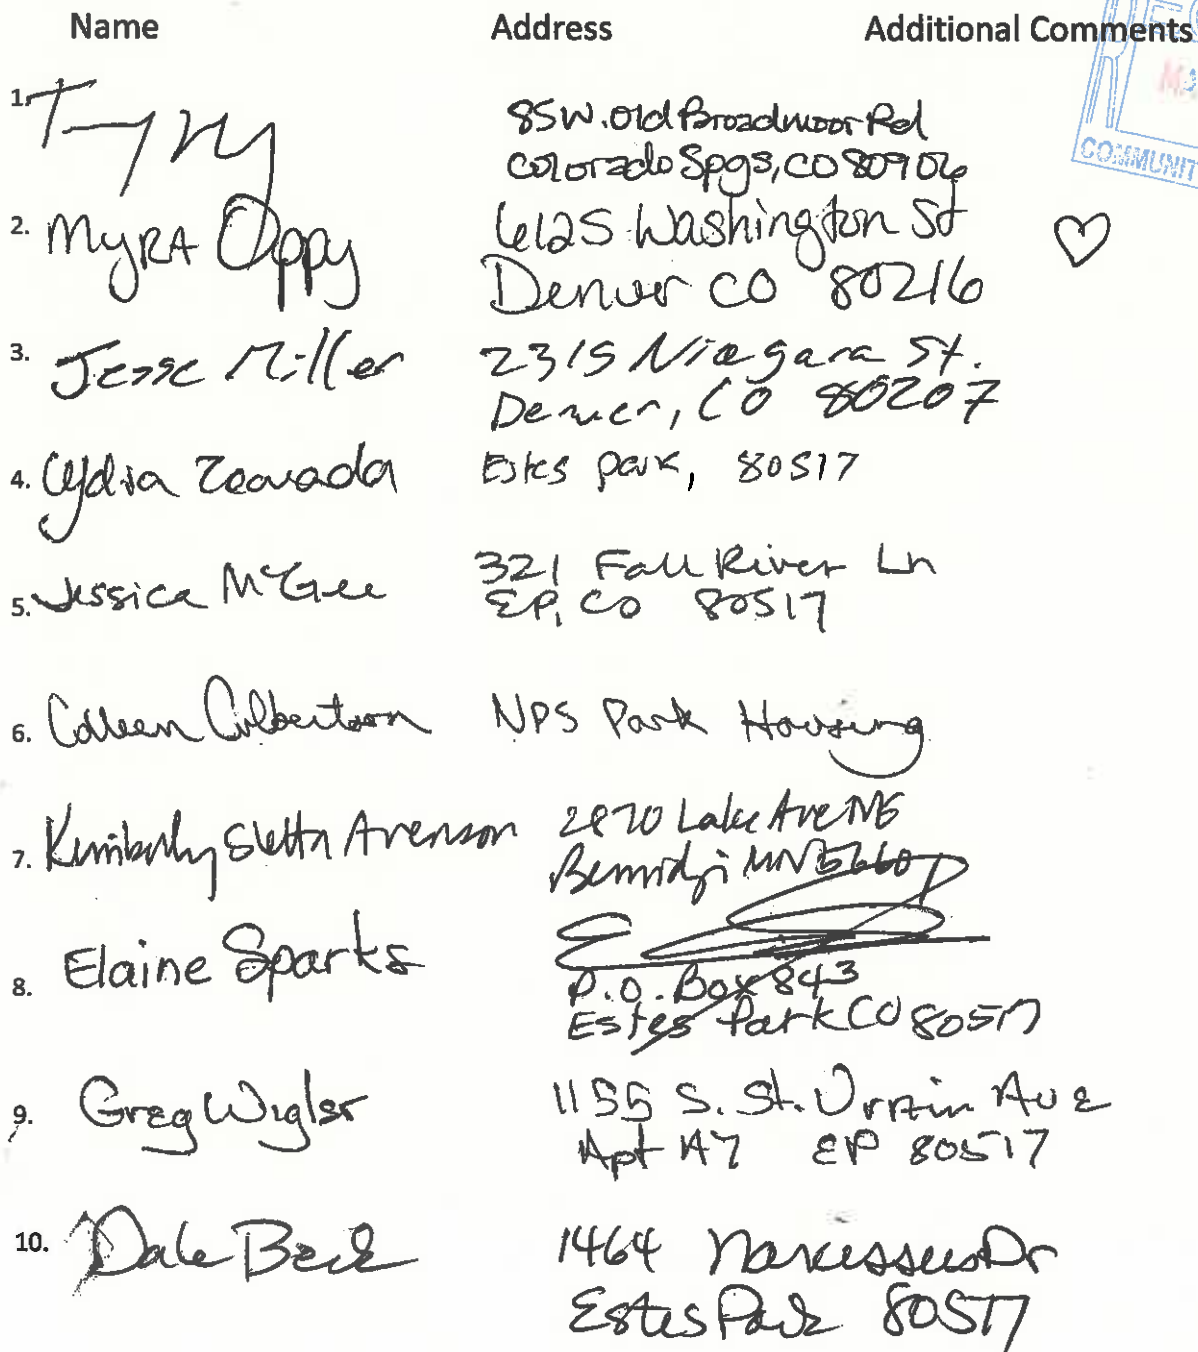 Name Address Additional Comments
1. 85 W. Old Broadmoor Rd
Colorado Spgs, CO 80906
2. Myra Oppy 6125 Washington St ♡
Denver CO 80216
3. Jesse Miller 2315 Niagara St.
Denver, CO 80207
4. Lydia Zawada Estes park, 80517
5. Jessica McGee 321 Fall River Ln
EP, CO 80517
6. Colleen Culbertson NPS Park Housing
7. Kimberly Sletta Arenson 2870 Lake Ave NE
Bemidji MN 5660
8. Elaine Sparks
P.O. Box 843
Estes Park CO 80517
9. Greg Wigler 1155 S. St. Vrain Ave
Apt A7 EP 80517
10. Dale Beck 1464 Narcissus Dr
Estes Park 80517
COMMUNIT